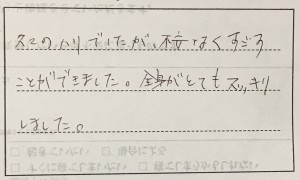 スでのハリでしたが、不立なくすごす
ことができました。全身がとてもスッキリ
しました。